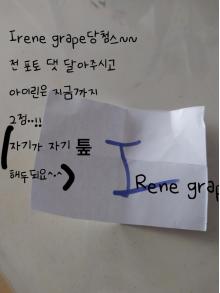 Irene grape당첨스~~
전 포토 댓 달아주시고
아이린은 지금까지
2점..!!
(자기가 자기 툪
해두되요^.^)
I
Rene grap